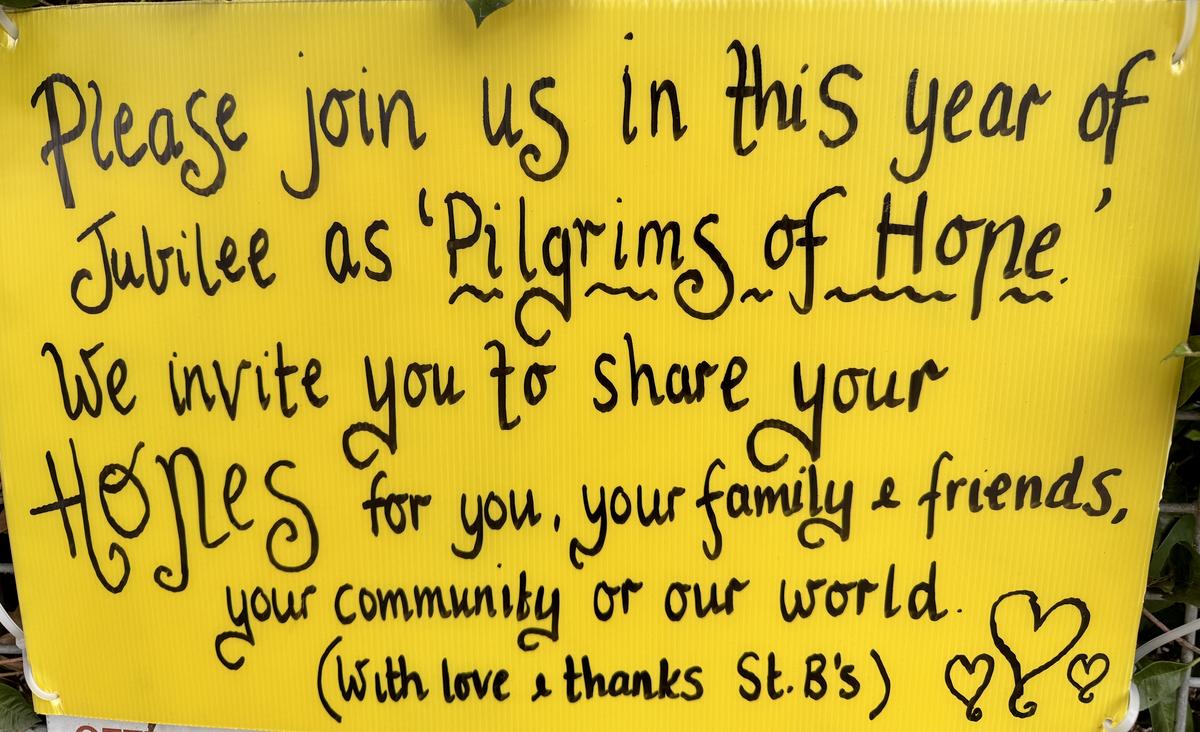 Please join us in this year of
Jubilee as 'Pilgrims of Hope.'
We invite you to share your
HOPES for you, your family & friends,
your community or our world.
(With love & thanks St. B's)